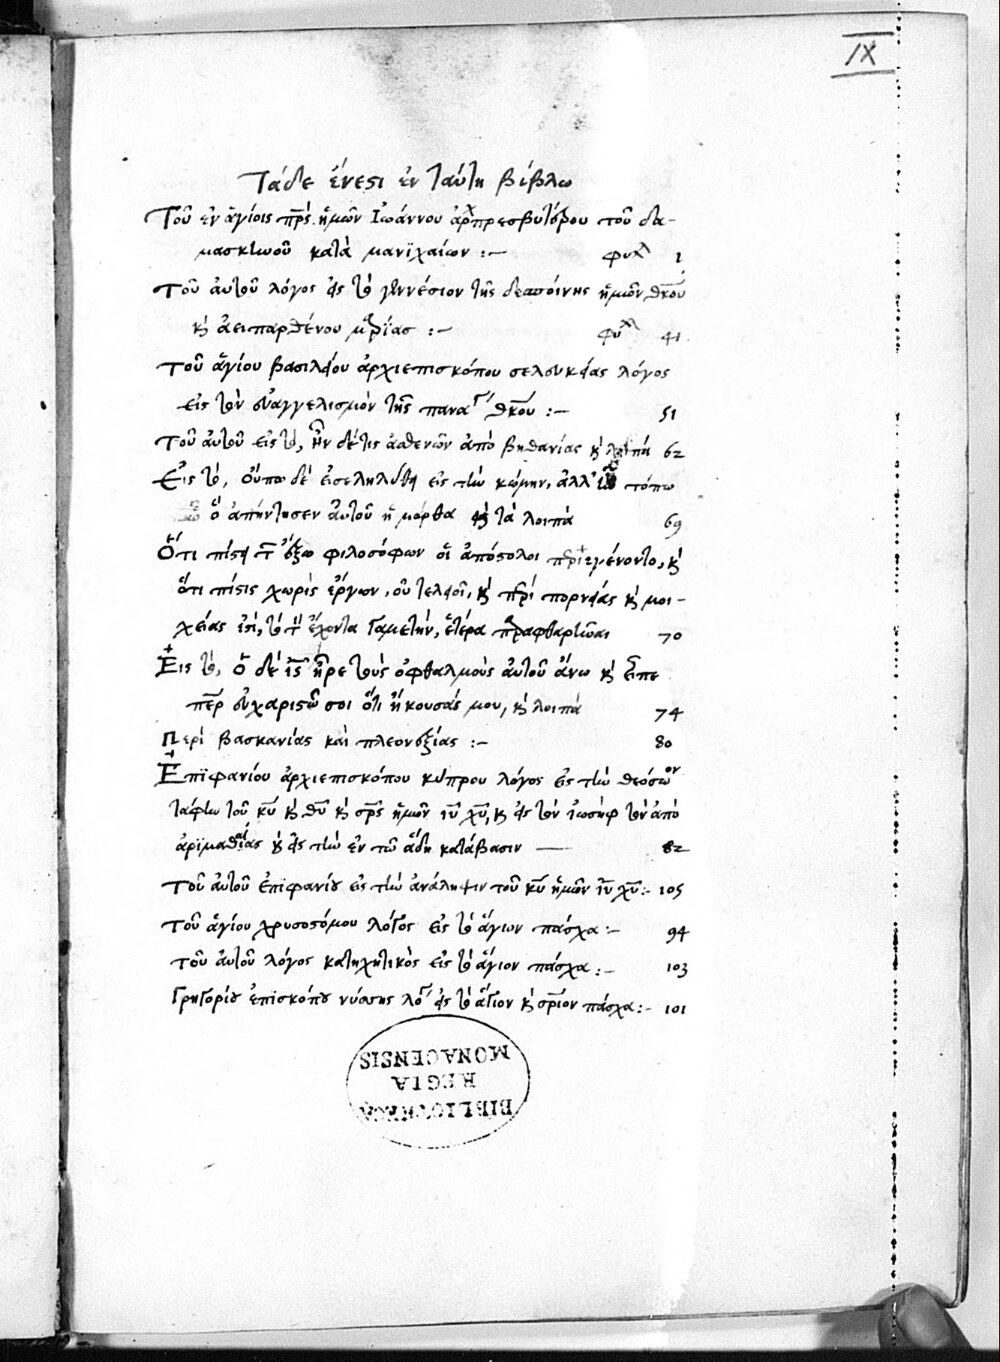 IX
Τάδε ἔνεστι ἐν ταύτῃ βίβλῳ
Τοῦ ἐν ἁγίοις πρς ἡμῶν Ἰωάννου ἀρχπρεσβυτέρου τοῦ δα-
μασκηνοῦ κατὰ μανϊχαίων :— φυλλ 1
Τοῦ αὐτοῦ λόγος εἰς τὸ γεννέσιον τῆς δεσποίνης ἡμῶν θκου
κ ἀειπαρθένου μαρίας :— φυλλ 41
Τοῦ ἁγίου βασιλείου ἀρχιεπισκόπου σελευκείας λόγος
εἰς τὸν εὐαγγελισμὸν τῆς παναγ θκου :— 51
Τοῦ αὐτοῦ εἰς τὸ, ἦν δέ τις ἀσθενῶν ἀπὸ βηθανίας κ λοιπά 62
Εἰς τὸ, οὔπω δὲ εἰσεληλύθη εἰς τὴν κώμην, ἀλλ' τόπω
ὁ ἀπήντησεν αὐτοῦ ἡ μάρθα κ τὰ λοιπὰ 69
Ὅτι πίστει τ ἔξω φιλοσόφων οἱ ἀπόστολοι περιεγένοντο, κ
ὅτι πίστις χωρὶς ἔργων, οὐ τελεοῖ, κ περὶ πορνείας κ μοι-
χείας ἐστὶ, τὸ τ ἔχοντα γαμετὴν, ἑτέρα παραφθαρῆναι 70
Εἰς τὸ, ὁ δὲ ις ἦρε τοὺς ὀφθαλμοὺς αὐτοῦ ἄνω κ εἶπε
περ εὐχαριστῶ σοι ὅτι ἤκουσάς μου, κ λοιπὰ 74
Περὶ βασκανίας καὶ πλεονεξίας :— 80
Ἐπϊφανίου ἀρχιεπισκόπου κύπρου λόγος εἰς τὴν θεόσωον
ταφὴν τοῦ κυ κ θυ κ σρς ἡμῶν ιυ χυ, κ εἰς τὸν ἰωσὴφ τὸν ἀπὸ
ἀριμαθαίας κ εἰς τὴν ἐν τῶ ἅδη κατάβασιν — 82
Τοῦ αὐτοῦ ἐπϊφανίου εἰς τὴν ἀνάληψιν τοῦ κυ ἡμῶν ιυ χυ :- 105
Τοῦ ἁγίου χρυσοστόμου λόγος εἰς τὸ ἅγιων πάσχα :— 94
Τοῦ αὐτοῦ λόγος κατηχητικὸς εἰς τὸ ἅγιον πάσχα :— 103
Γρηγορίου ἐπισκόπου νύσσης λογ εἰς τὸ ἅγιον κ σριον πάσχα :— 101
BIBLIOTHECA
REGIA
MONACENSIS